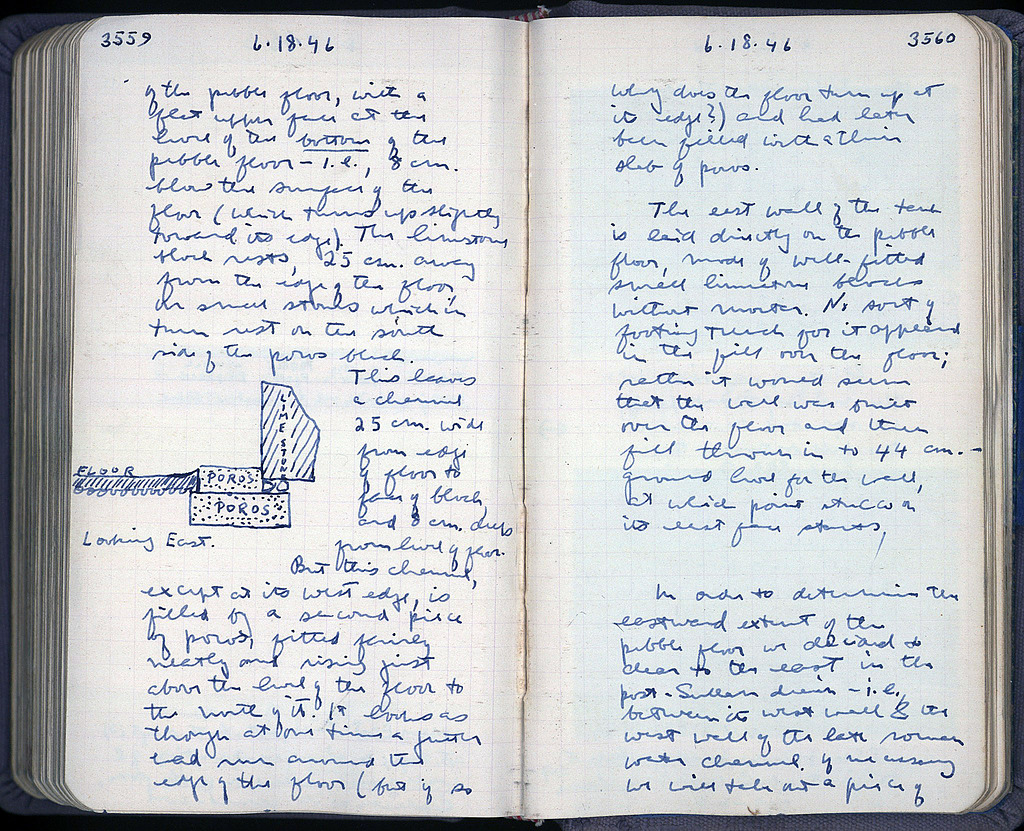 3559
6.18.46
of the pebble floor, with a
flat upper face at the
level of the bottom of the
pebble floor – i.e., 8 cm.
below the surface of the
floor (which turns up slightly
toward its edge). The limestone
block rests, 25 cm. away
from the edge of the floor,
on small stones which in
turn rest on the south
side of the poros block.
This leaves
a channel
25 cm. wide
from edge
of floor to
face of block,
and 8 cm. deep
from level of floor.
LIMESTONE
FLOOR
POROS
POROS
Looking East.
But this channel,
except at its west edge, is
filled by a second piece
of poros, fitted fairly
neatly and rising just
above the level of the floor to
the north of it. It looks as
though at one time a gutter
had run around the
edge of the floor (but if so
6.18.46
3560
why does the floor turn up at
its edge?) and had later
been filled with a thin
slab of poros.
The east wall of the tank
is laid directly on the pebble
floor, made of well-fitted
small limestone blocks
without mortar. No sort of
footing trench for it appeared
in the fill over the floor;
rather it would seem
that the wall was built
over the floor and then
fill thrown in to 44 cm. –
ground level for the wall,
at which point stucco on
its east face starts.
In order to determine the
eastward extent of the
pebble floor we decided to
clear to the east in the
post-Sullan drain – i.e.,
between its west wall & the
west wall of the late roman
water channel. If necessary
we will take out a piece of